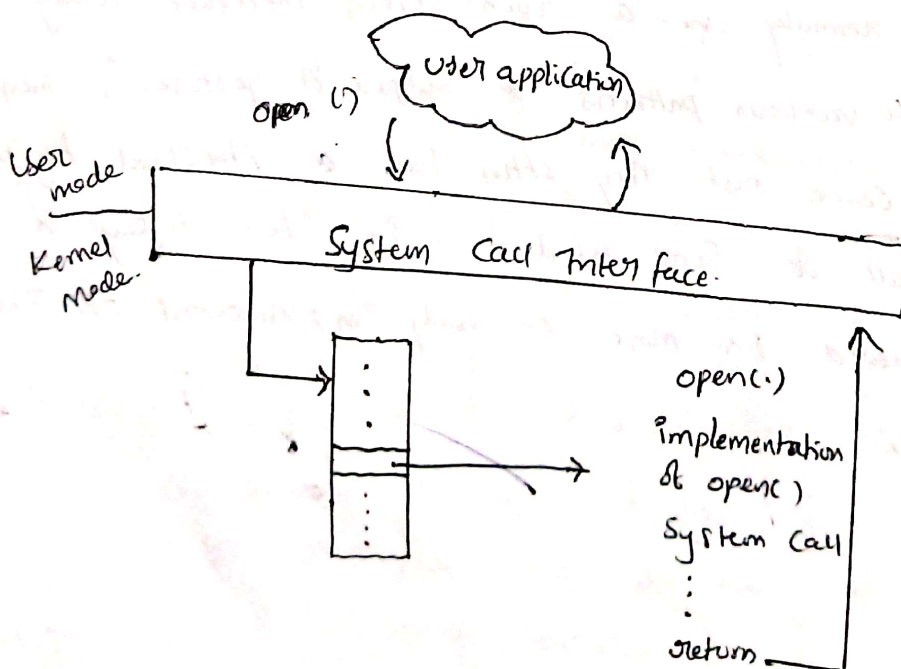 user application
open (.)
User
mode
Kernel
mode.
System Call Interface.
open(.)
implementation
of open()
System Call
return